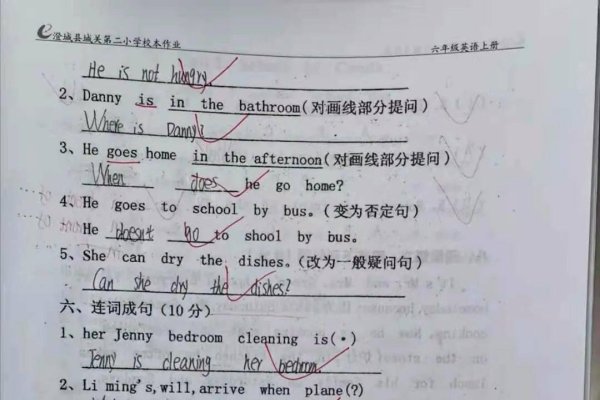 澄城县城关第二小学校本作业 六年级英语上册
He is not hungry.
2、Danny is in the bathroom(对画线部分提问)
Where is Danny?
3、He goes home in the afternoon(对画线部分提问)
When does he go home?
4、He goes to school by bus。(变为否定句)
He doesn't go to shool by bus.
5、She can dry the dishes。(改为一般疑问句)
Can she dry the dishes?
六、连词成句(10分)
1、her Jenny bedroom cleaning is(·)
Jenny is cleaning her bedroom.
2、Li ming's,will,arrive when plane(?)